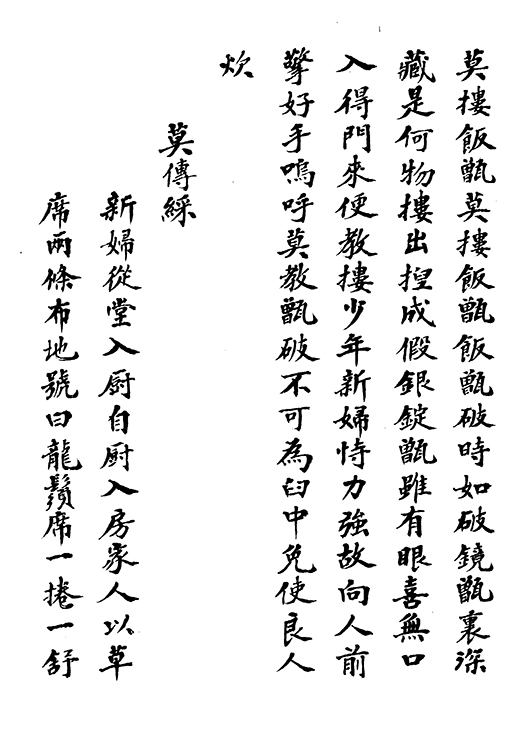 莫摟飯甑莫摟飯甑飯甑破時如破鏡甑裏深
藏是何物摟出揑成假銀錠甑雖有眼喜無口
入得門來便教摟少年新婦恃力強故向人前
擎好手嗚呼莫教甑破不可為臼中免使良人
炊
莫傳綵
新婦從堂入厨自厨入房家人以草
席兩條布地號曰龍鬚席一捲一舒